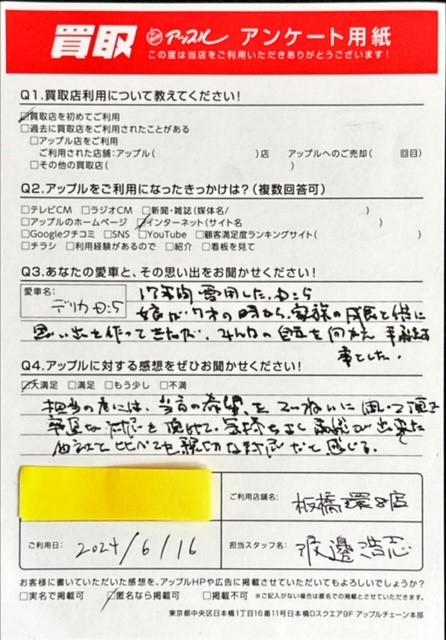 買取 アップル アンケート用紙
この度は当店をご利用いただきありがとうございます!
Q1.買取店利用について教えてください!
□買取店を初めてご利用
□過去に買取店をご利用されたことがある
□アップル店をご利用
ご利用された店舗:アップル( )店 アップルへのご売却( 回目)
□その他の買取店( )
Q2.アップルをご利用になったきっかけは?(複数回答可)
□テレビCM □ラジオCM □新聞・雑誌(媒体名/ )
□アップルのホームページ □インターネット(サイト名 )
□Googleクチコミ □SNS □YouTube □顧客満足度ランキングサイト( )
□チラシ □利用経験があるので □紹介 □看板を見て
Q3.あなたの愛車と、その思い出をお聞かせください!
愛車名: デリカD:5
17年間愛用したD:5
娘が7才の時から、家族の成長と共に
思い出を作ってきたが、みんなの
事とした。
Q4.アップルに対する感想をぜひお聞かせください!
□大満足 □満足 □もう少し □不満
担当の方には、当方の希望をていねいに聞いて頂き
対応を頂けて、気持ちよく商談が出来た
他社と比べても親切な対応だと感じる。
ご利用店名: 板橋環8店
ご利用日: 2024/6/16
担当スタッフ名: 渡邊浩志
お客様に書いていただいた感想を、アップルHPや広告に掲載させていただいてもよろしいでしょうか?
□実名で掲載可 □匿名なら掲載可 □掲載不可 ※ご記入がない場合は匿名での掲載とさせていただきます。
東京都中央区日本橋1丁目16番11号日本橋Dスクエア9F アップルチェーン本部